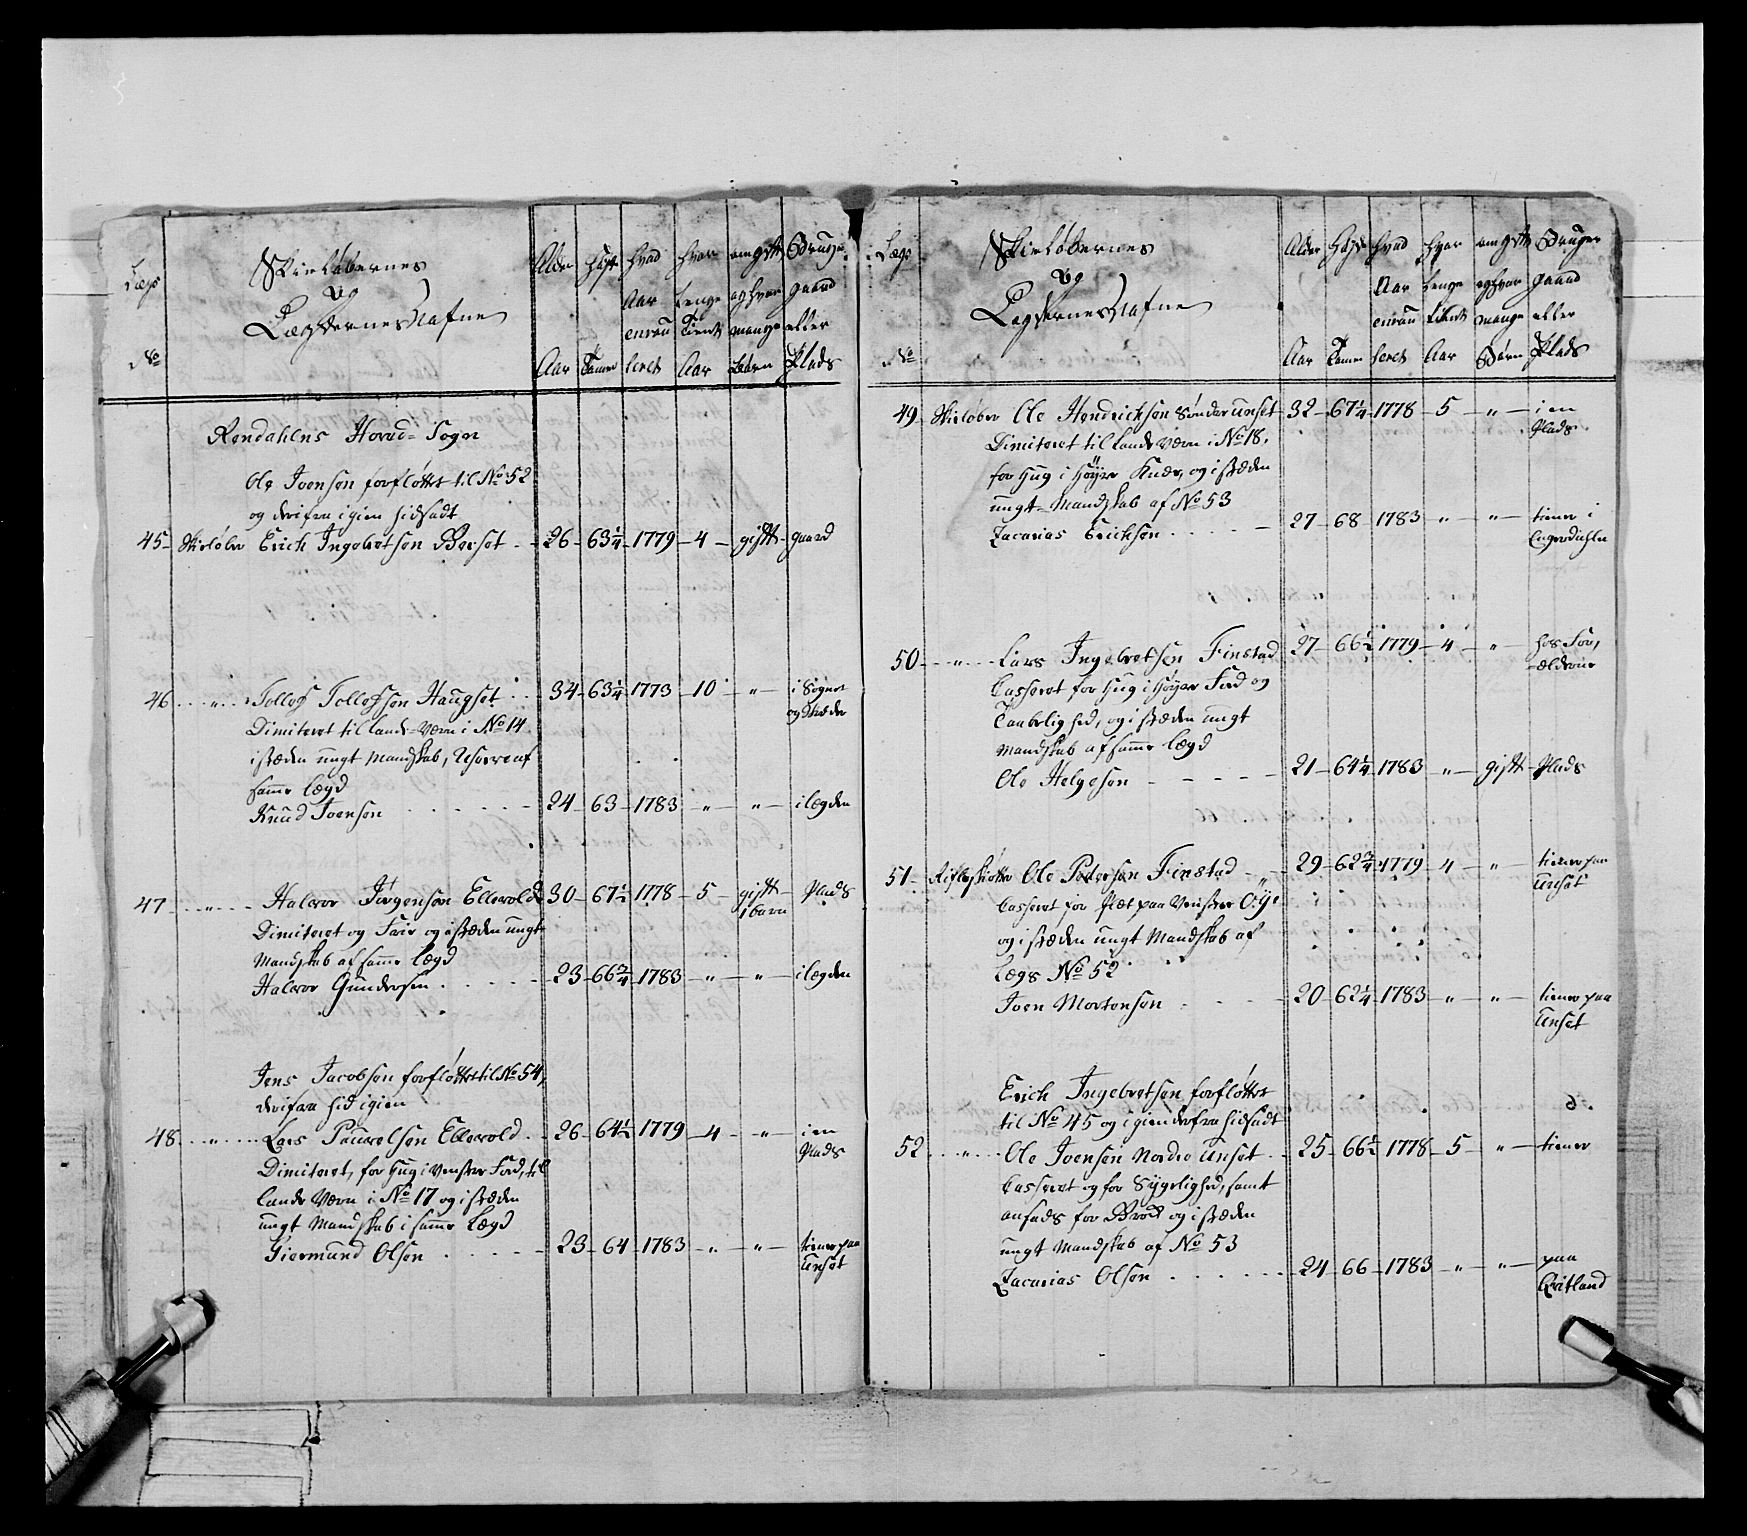 Lægs
No
Skieløbernes
og
Lægdernes Nafne
Alder
Aar
Høyde
Tomer
Hvad
Aar
enrou
leret
Hvor
lenge
Tient
Aar
om gift
og hvor
mange
Børn
Bruger
gaard
eller
Plads
Rendahlens Hoved-Sogn
Ole Joensen forfløttet til No 52
og derifra igien hidsadt
45 Skieløber Erich Ingebretsen Berset 26 63 1/4 1779 4 gift gaard
46 " Tollef Tollefsen Haugset 34 63 1/4 1773 10 " i Sognet
og Stæder
Dimiteret til Lande-Værn i No 14
i stæden ungt Mandskab, af
samme lægd
Knud Joensen 24 63 1783 " " i lægden
47 " Halvor Jørgensen Ellevold 30 67 1/2 1778 5 gift Plads
1 barn
Dimiteret og i stæden ungt
Mandskab af samme lægd
Halvor Gundersen 23 66 3/4 1783 " " i lægden
Jens Jacobsen forfløttet til No 54,
derifra hid igien
48 " Lars Pauvelsen Ellevold 26 64 1/2 1779 4 " i en
Plads
Dimiteret, for Hug i venster Fod, til
Lande Værn i No 17 og i stæden
ungt Mandskab i samme Lægd
Giermund Olsen 23 64 1783 " " tiener paa
Unset
Lægs
No
Skieløbernes
og
Lægdernes Nafne
Alder
Aar
Høyde
Tomer
Hvad
Aar
enrou
leret
Hvor
lenge
tient
Aar
om gift
og hvor
mange
Børn
Bruger
gaard
eller
Plads
49 Skieløber Ole Hendrichsen Sønder Unset 32 67 1/4 1778 5 " i en
Plads
Dimiteret til Lande Værn i No 18,
for Hug i Høyre Knæe, og i stæden
ungt Mandskab af No 53
Zacarias Erichsen 27 68 1783 " " tiener i
Engerdahlen
50 " Lars Ingebretsen Finstad 27 66 1/2 1779 4 " hos For,
ældrene
Casseret for Hug i Høyre Fod og
Taabelighed, og i stæden ungt
Mandskab af samme lægd
Ole Helgesen 21 64 1/4 1783 " gift Plads
51 Rifleskiøtter Ole Pedersen Finstad 29 62 3/4 1779 4 " tiener paa
Unset
Casseret for Plet paa Venstre Øye
og i stæden ungt Mandskab af
Lægs No 52
Joen Mortensen 20 62 1/4 1783 " " tiener paa
Unset
Erich Ingebretsen forfløttet
til No 45 og igien derfra hidsadt
52 " Ole Joensen Nordre Unset 25 66 1/2 1778 5 " tiener
Casseret og for Sygelighed, samt
ansads for Brok og i stæden
ungt Mandskab af No 53
Zacarias Olsen 24 66 1783 " " paa
Qvitland